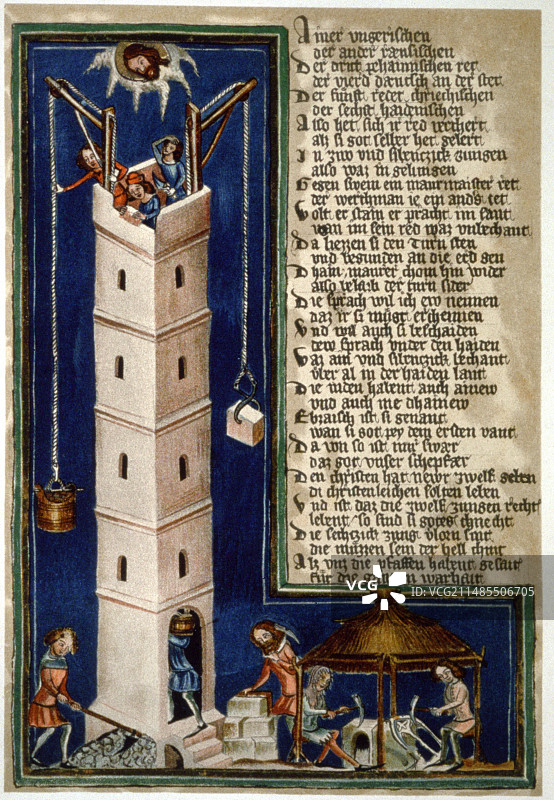 Ainer vngerischen
der ander räusischen
Der dritt behamischen ret
der vierd däutsch an der stet
Der fünft redet chriechischen
der sechst haidnischen
Also het sich ir red verchert
als si got selber het gelert
In zwo vnd sibenczick zungen
also waz in gelungen
Gegen swem ein maurmaister ret
der werchman ie ein anders tet
Wolt er stain er pracht im sant
wan im sein red waz vnbechant
Da liezzen si den turn sten
vnd begunden an die erd gen
Dhain maurer chom hin wider
also belaib der turn sider
Die sprach wil ich ew nennen
daz ir si mügt erchennen
Vnd wil auch si beschaiden
dew sprach vnder den haiden
Waz am vnd sibenczick bechant
vber al in der haiden lant
Die iuden habent auch ainew
vnd auch me dhainew
Ebraisch ist si genant
wan si got pey dem ersten vant
Da von so ist mir swär
daz got vnser schepfär
Den christen hat newr zwelf geben
di christenleichen solten leben
Vnd ist daz die zwelf zungen recht
lebent so sind si gotes chnecht
Die sechczick zung vlorn sint
die müzzen sein der hell chint
Alz vns die pfaffen habent gesait
für die warhait
VCG
VCG.COM
ID: VCG211485506705